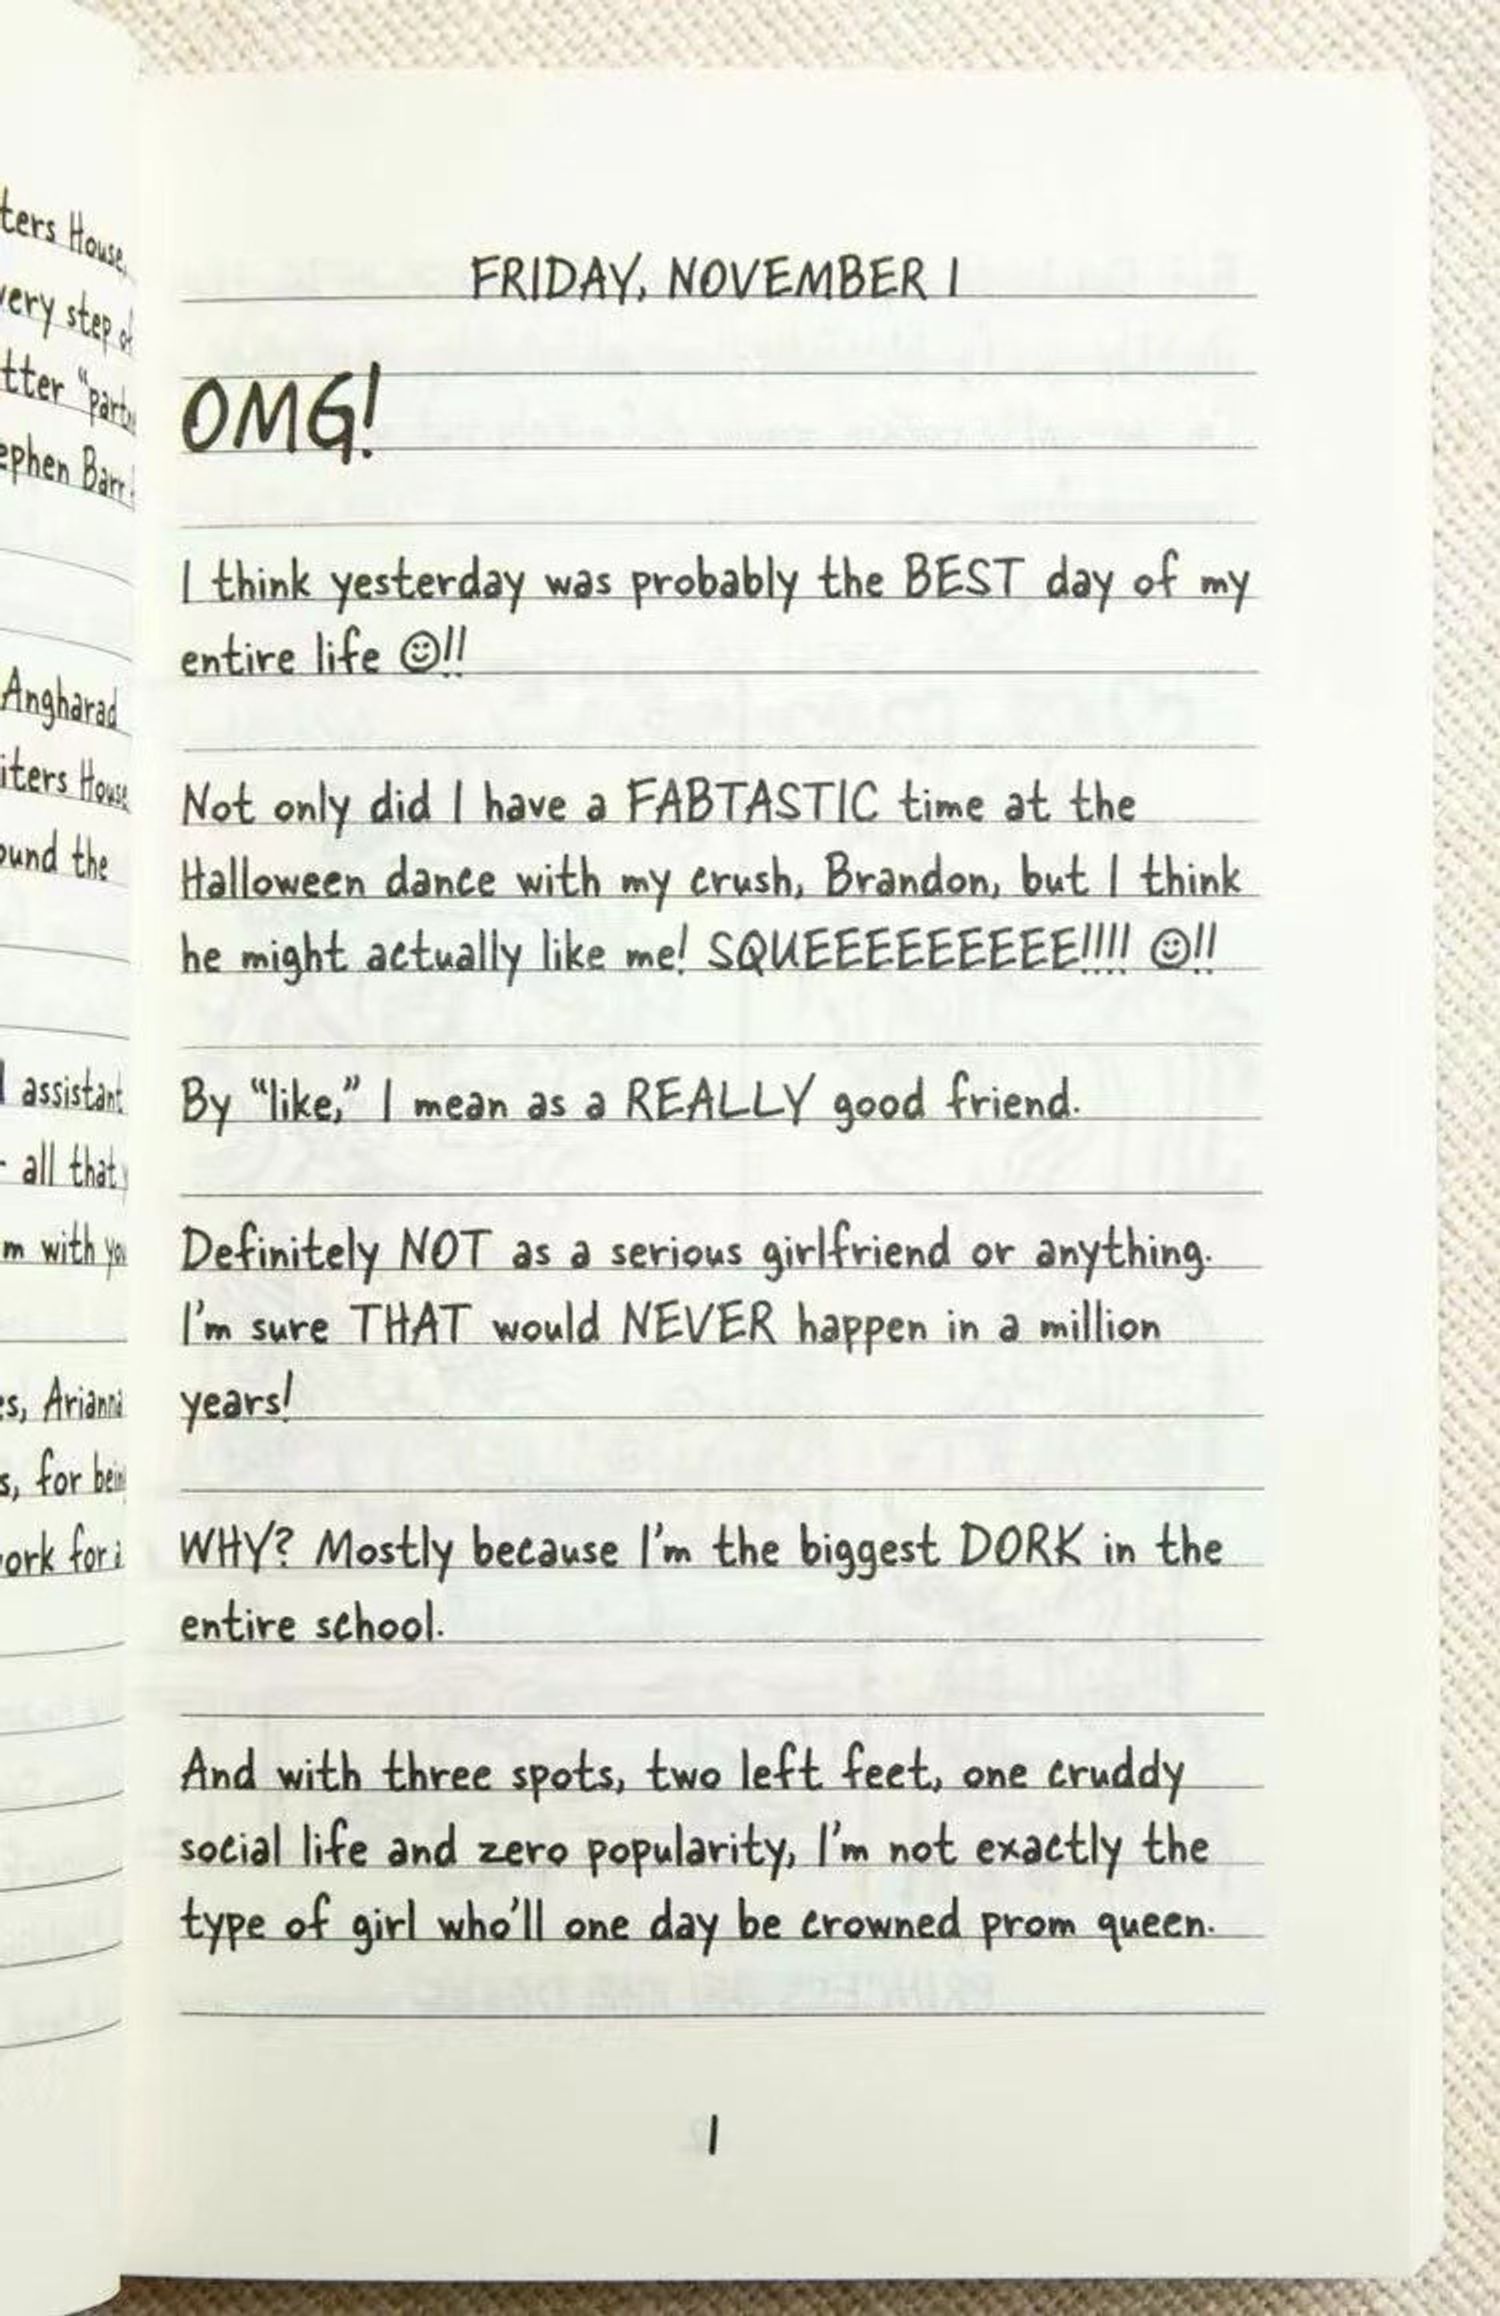 ters House,
very step of
tter "partn
ephen Barr
Angharad
iters House
ound the
assistant
all that
m with you
es, Arianna
s, for being
ork for a
FRIDAY, NOVEMBER 1
OMG!
I think yesterday was probably the BEST day of my
entire life ☺!!
Not only did I have a FABTASTIC time at the
Halloween dance with my crush, Brandon, but I think
he might actually like me! SQUEEEEEEEEEE!!!! ☺!!
By “like,” I mean as a REALLY good friend.
Definitely NOT as a serious girlfriend or anything.
I'm sure THAT would NEVER happen in a million
years!
WHY? Mostly because I'm the biggest DORK in the
entire school.
And with three spots, two left feet, one cruddy
social life and zero popularity, I'm not exactly the
type of girl who'll one day be crowned prom queen.
1